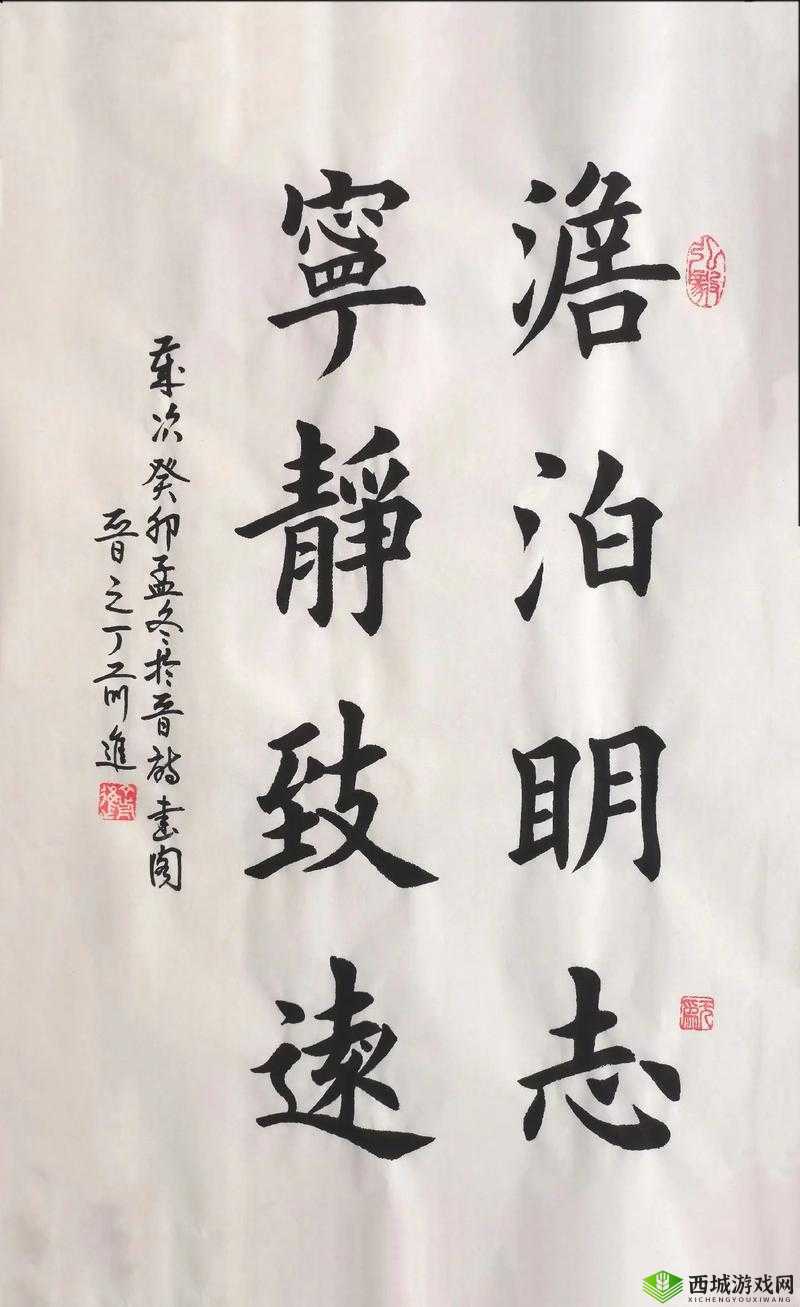 澹泊明志
寧靜致遠
歲次癸卯孟冬於晉韵書閣
晉之丁前進
弘毅
西城游戏网
XICHENGYOUXIWANG